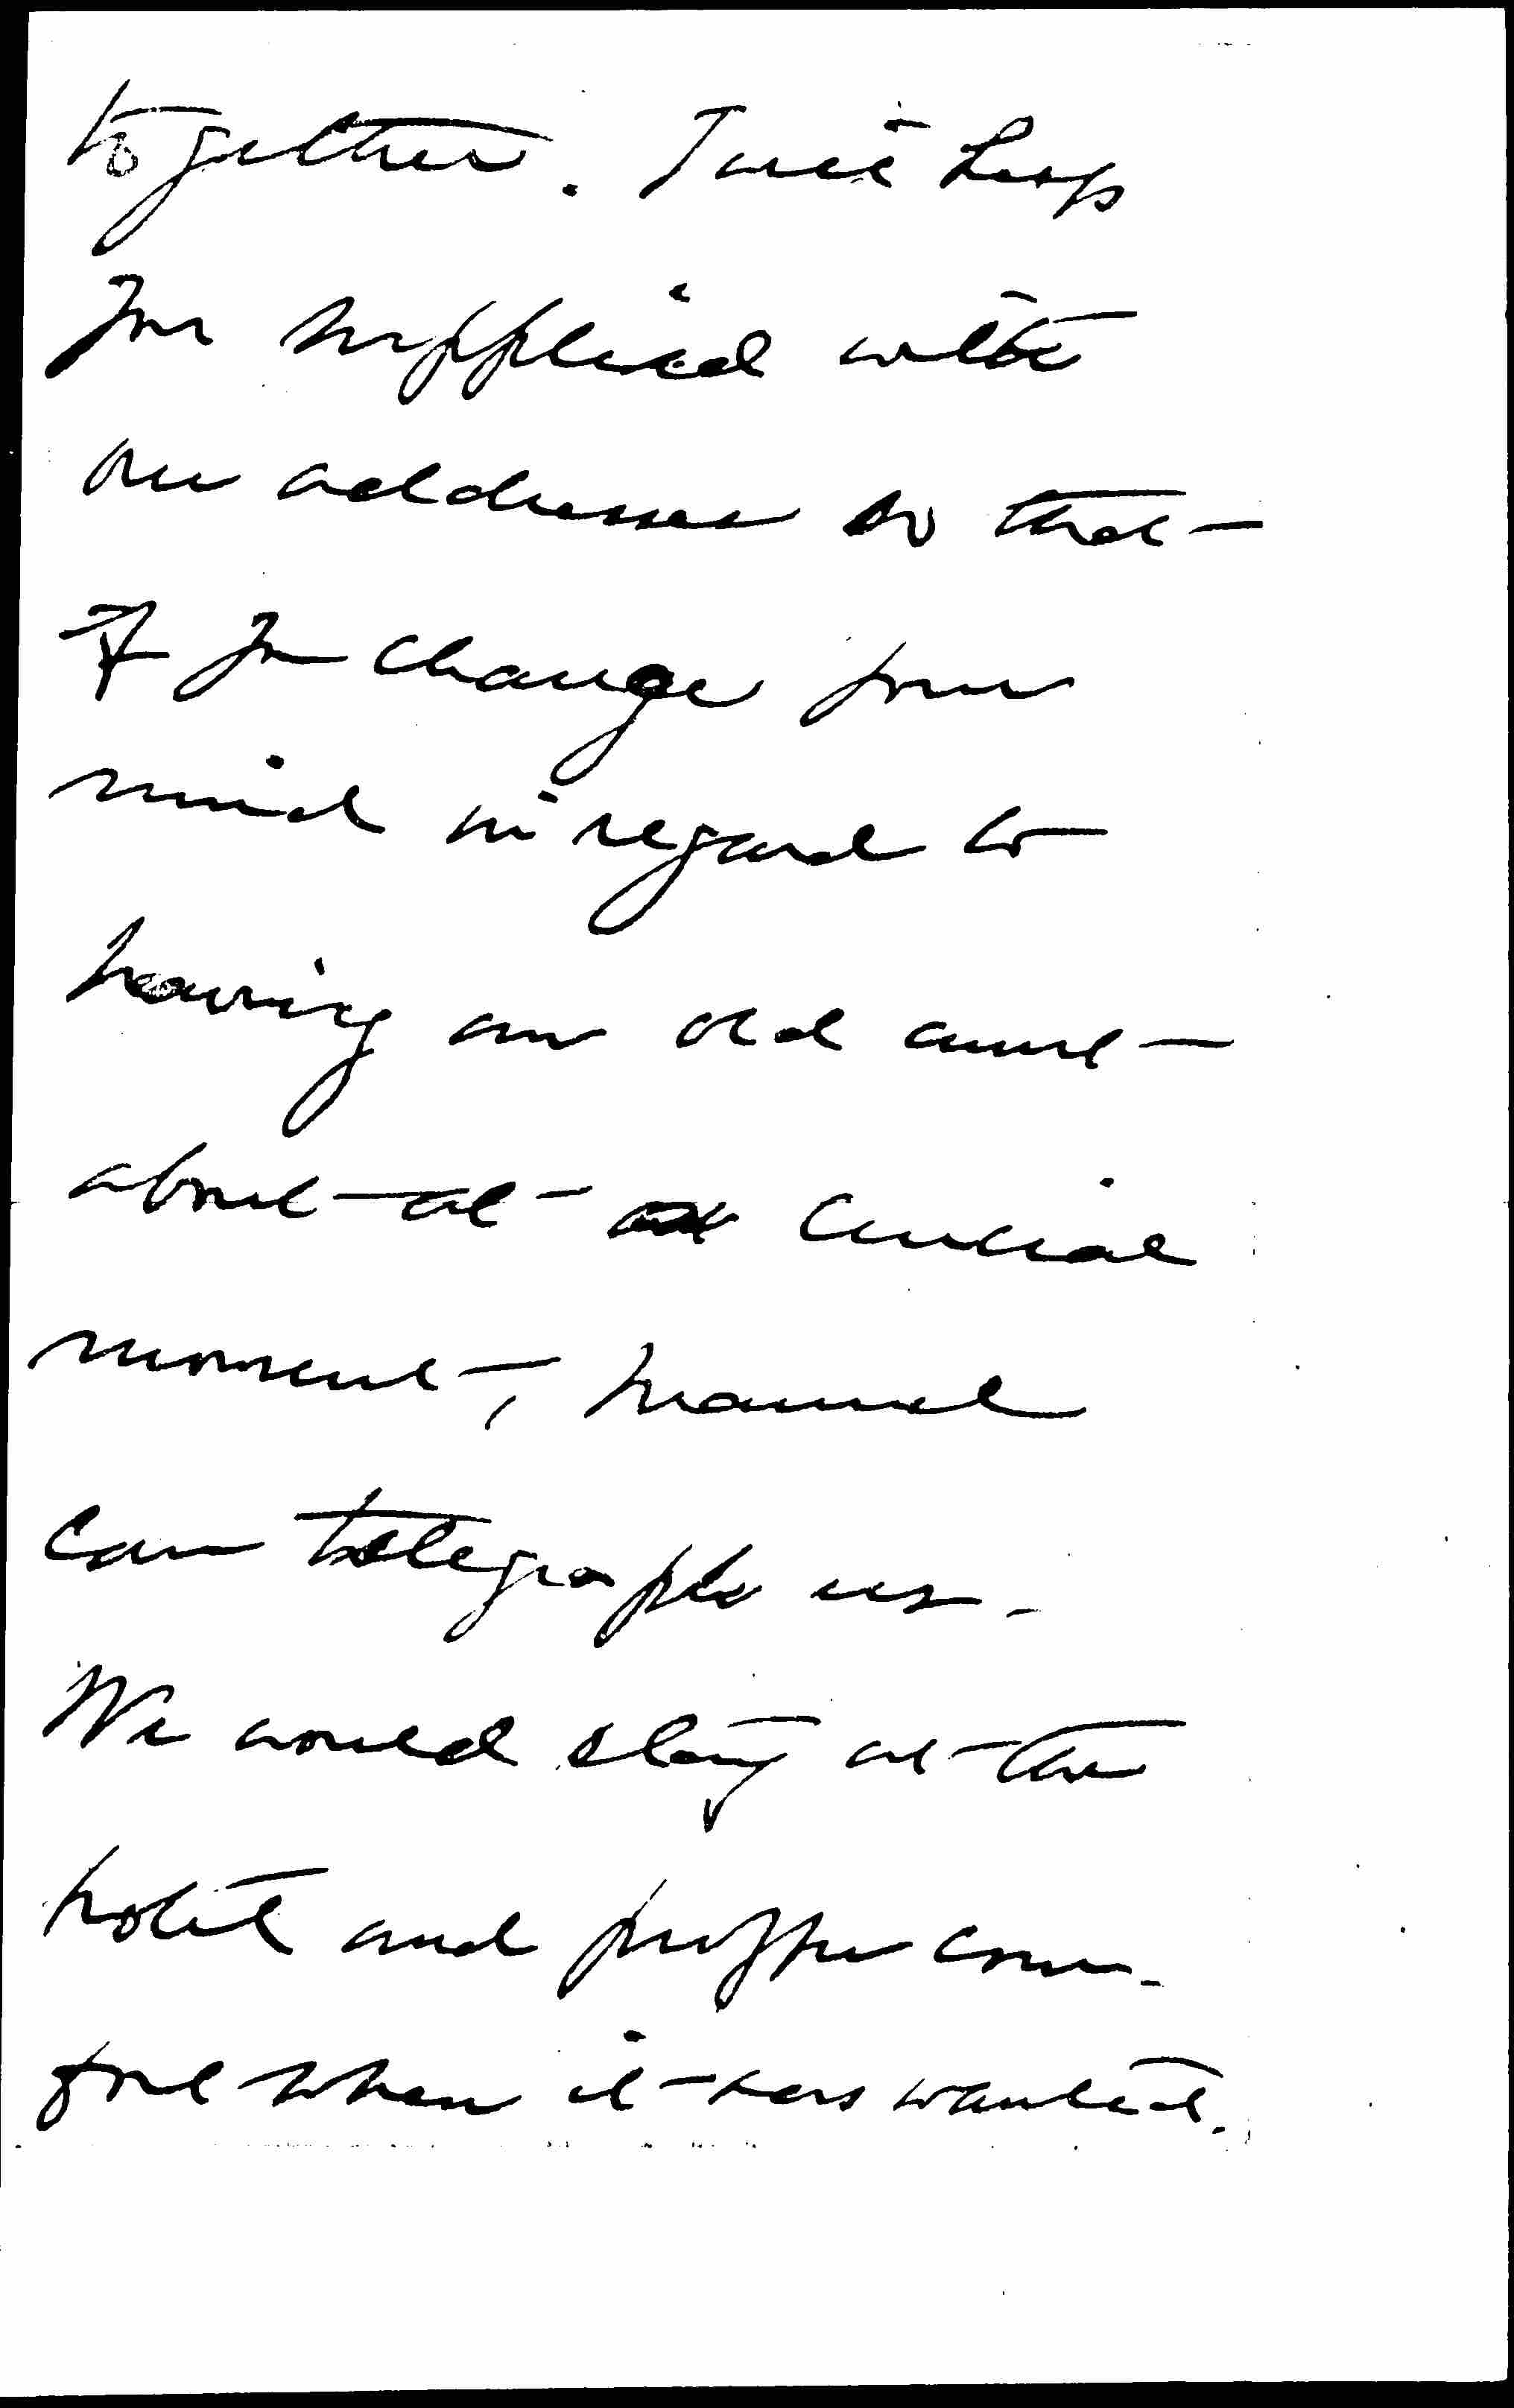 together. I will keep
you supplied with
our addresses so that
if you change your
mind in regard to
having an old aunt
about at a crucial
moment,
can telegraph us.
We would stay at the
hotel and proffer com-
fort when it was wanted.